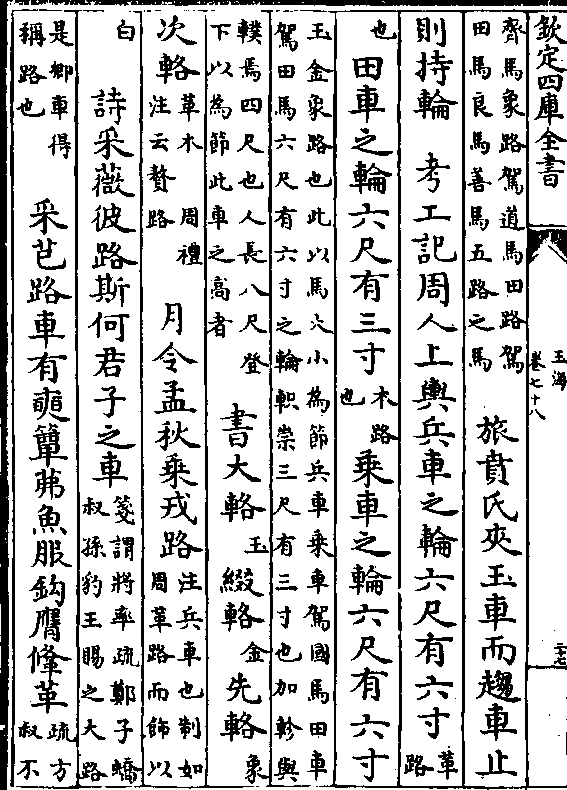 欽定四庫全書
玉海
卷七十八
二十七
齊馬象路駕道馬田路駕
田馬良馬善馬五路之馬
旅賁氏夾玉車而趨車止
則持輪　考工記周人上輿兵車之輪六尺有六寸
革
路
也
田車之輪六尺有三寸
木路
也
乘車之輪六尺有六寸
玉金象路也此以馬大小為節兵車乘車駕國馬田車
駕田馬六尺有六寸之輪軹崇三尺有三寸也加軫與
轐焉四尺也人長八尺登
下以為節此車之高者
書大輅
玉
綴輅
金
先輅
象
次輅
革木　周禮
注云贅路
月令孟秋乘戎路
注兵車也制如
周革路而飾以
白
詩采薇彼路斯何君子之車
箋謂將率疏鄭子蟜
叔孫豹王賜之大路
是卿車得
稱路也
采芑路車有奭簟茀魚服鉤膺鞗革
疏方
叔不